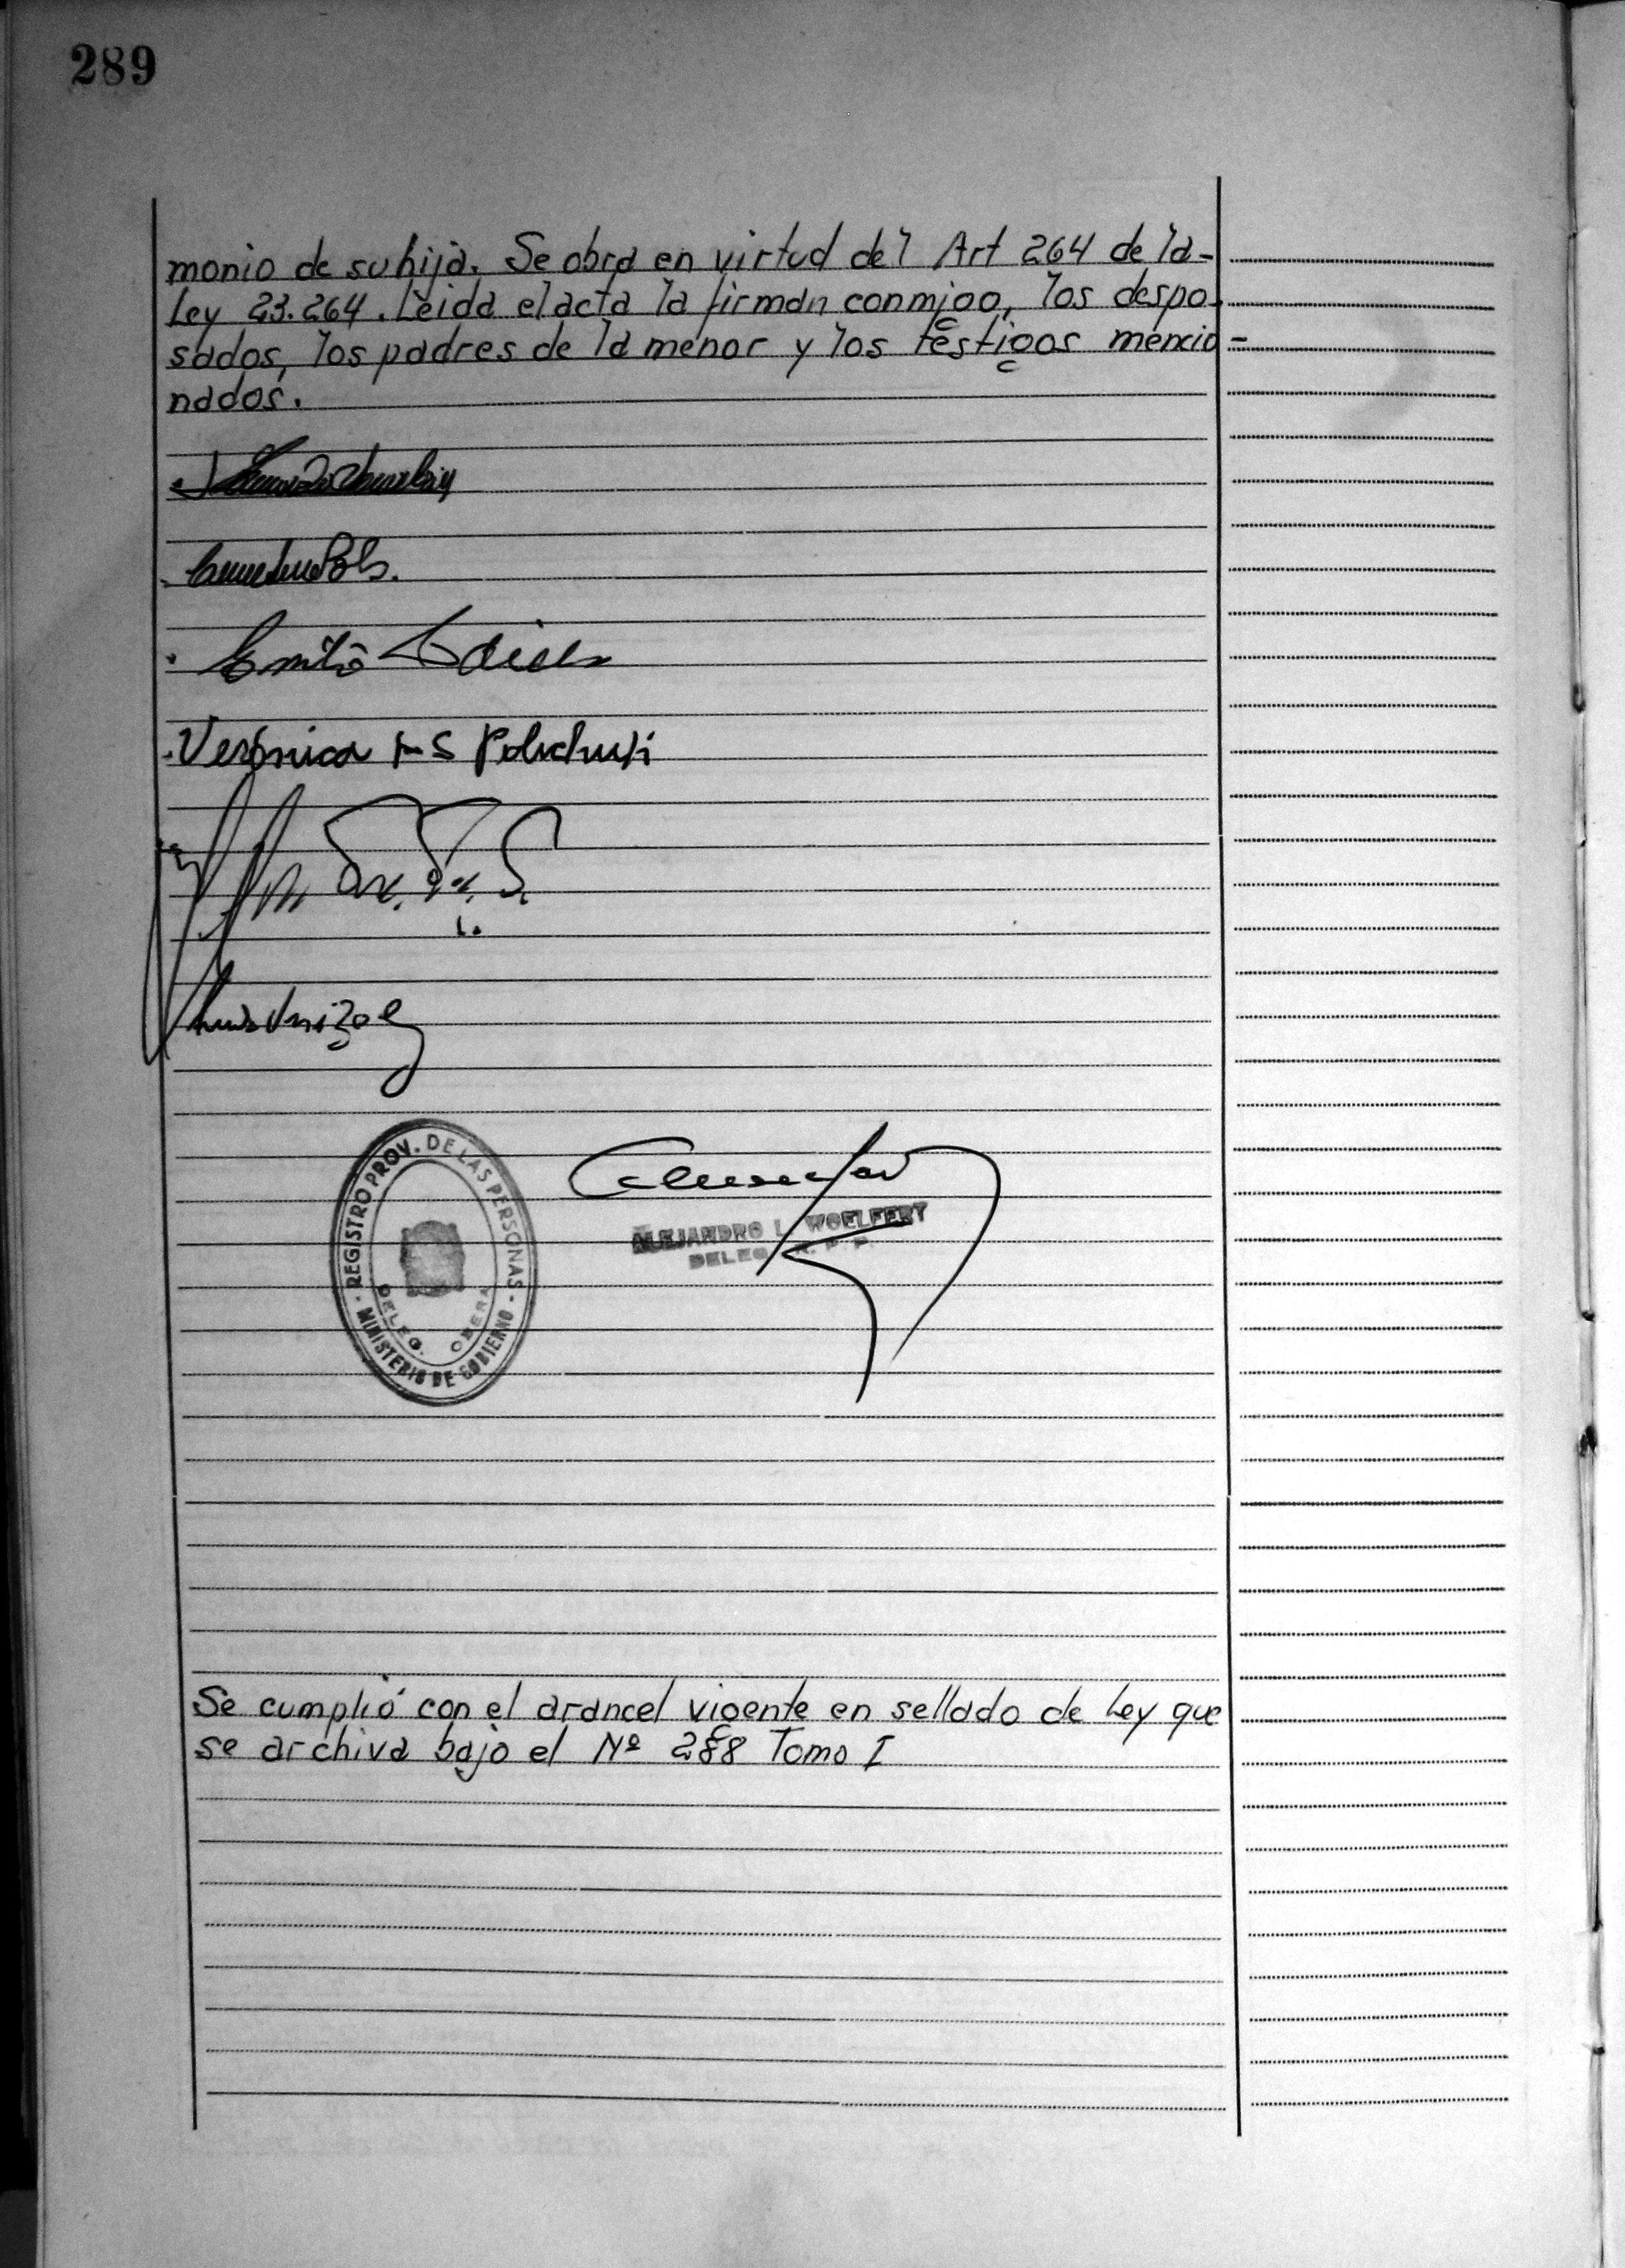 289
monio de su hija. Se obra en virtud del Art 264 de la-
Ley 23.264. Leida el acta la firman conmigo, los despo-
sados, los padres de la menor y los testigos mencio-
nados.
Emilio
Verónica
REGISTRO PROV. DE LAS PERSONAS
DELEG. OBERA
MINISTERIO DE GOBIERNO
ALEJANDRO L. WOELFERT
DELEG. R. P. P.
Se cumplió con el arancel vigente en sellado de Ley que
se archiva bajo el Nº 288 Tomo I